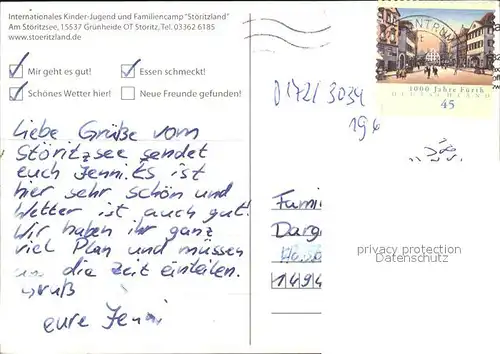 Internationales Kinder-Jugend und Familiencamp "Störitzland"
Am Störitzsee, 15537 Grünheide OT Störitz, Tel. 03362 6185
www.stoeritzland.de
Mir geht es gut!
Essen schmeckt!
Schönes Wetter hier!
Neue Freunde gefunden!
Liebe Grüße vom
Störitzsee sendet
euch Jenni. Es ist
hier sehr schön und
Wetter ist auch gut!
Wir haben ihr ganz
viel Plan und müssen
die Zeit einteilen.
Gruß
eure Jenni
1000 Jahre Fürth
DEUTSCHLAND
45
0172/3034
196
Fami
Darg
1494
privacy protection
Datenschutz